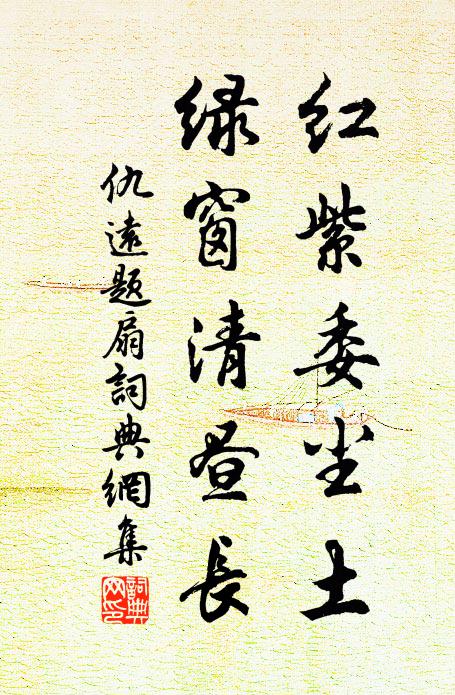 红紫委尘土
绿窗清昼长
仇遠題扇詞典網集
詞典网印